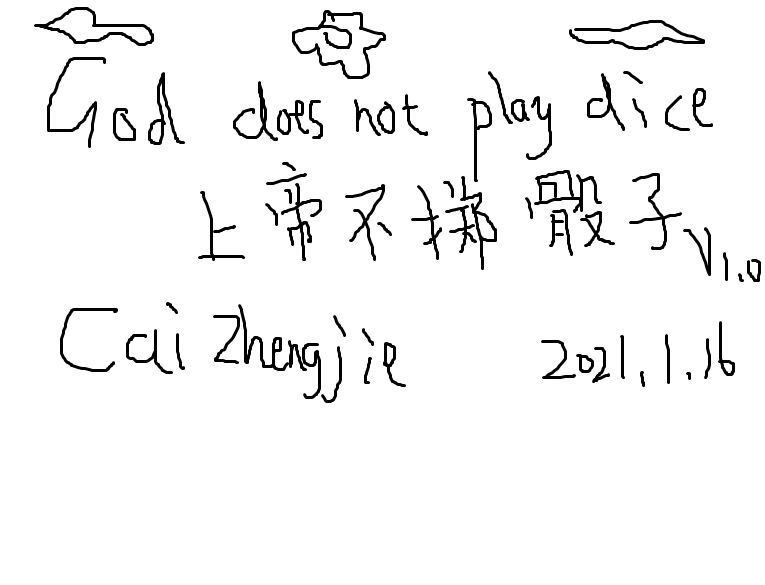 God does not play dice
上帝不掷骰子 V1.0
Cai Zhengjie 2021.1.16